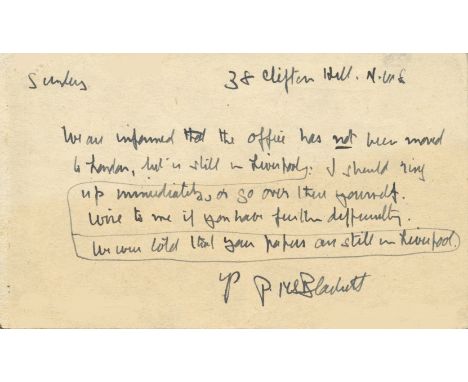 Sunday
38 Clifton Hill. N.W.8
We are informed that the office has not been moved
to London, but is still in Liverpool. I should ring
up immediately, or go over there yourself.
Wire to me if you have further difficulty.
We were told that your papers are still in Liverpool.
P M S Blackett